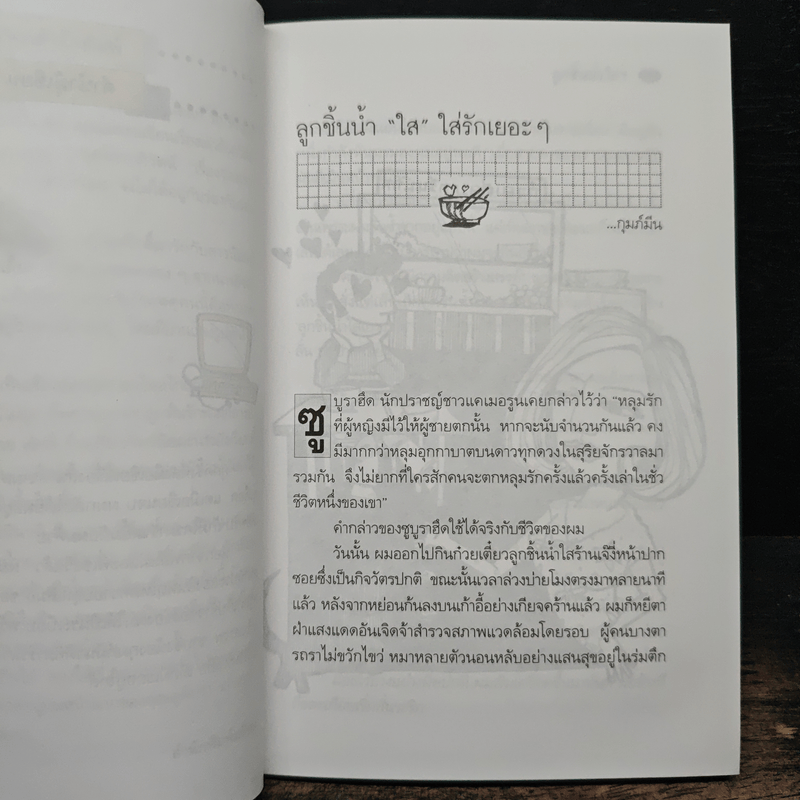 ลูกชิ้นน้ำ “ใส” ใส่รักเยอะๆ
...กุมภ์มีน
ซูบูราฮึด นักปราชญ์ชาวแคเมอรูนเคยกล่าวไว้ว่า “หลุมรัก
ที่ผู้หญิงมีไว้ให้ผู้ชายตกนั้น หากจะนับจำนวนกันแล้ว คง
มีมากกว่าหลุมอุกกาบาตบนดาวทุกดวงในสุริยจักรวาลมา
รวมกัน จึงไม่ยากที่ใครสักคนจะตกหลุมรักครั้งแล้วครั้งเล่าในชั่ว
ชีวิตหนึ่งของเขา”
คำกล่าวของซูบูราฮึดใช้ได้จริงกับชีวิตของผม
วันนั้น ผมออกไปกินก๋วยเตี๋ยวลูกชิ้นน้ำใสร้านเจ๊งี่หน้าปาก
ซอยซึ่งเป็นกิจวัตรปกติ ขณะนั้นเวลาล่วงบ่ายโมงตรงมาหลายนาที
แล้ว หลังจากหย่อนก้นลงบนเก้าอี้อย่างเกียจคร้านแล้ว ผมก็หยีตา
ฝ่าแสงแดดอันเจิดจ้าสำรวจสภาพแวดล้อมโดยรอบ ผู้คนบางตา
รถราไม่ขวักไขว่ หมาหลายตัวนอนหลับอย่างแสนสุขอยู่ในร่มตึก